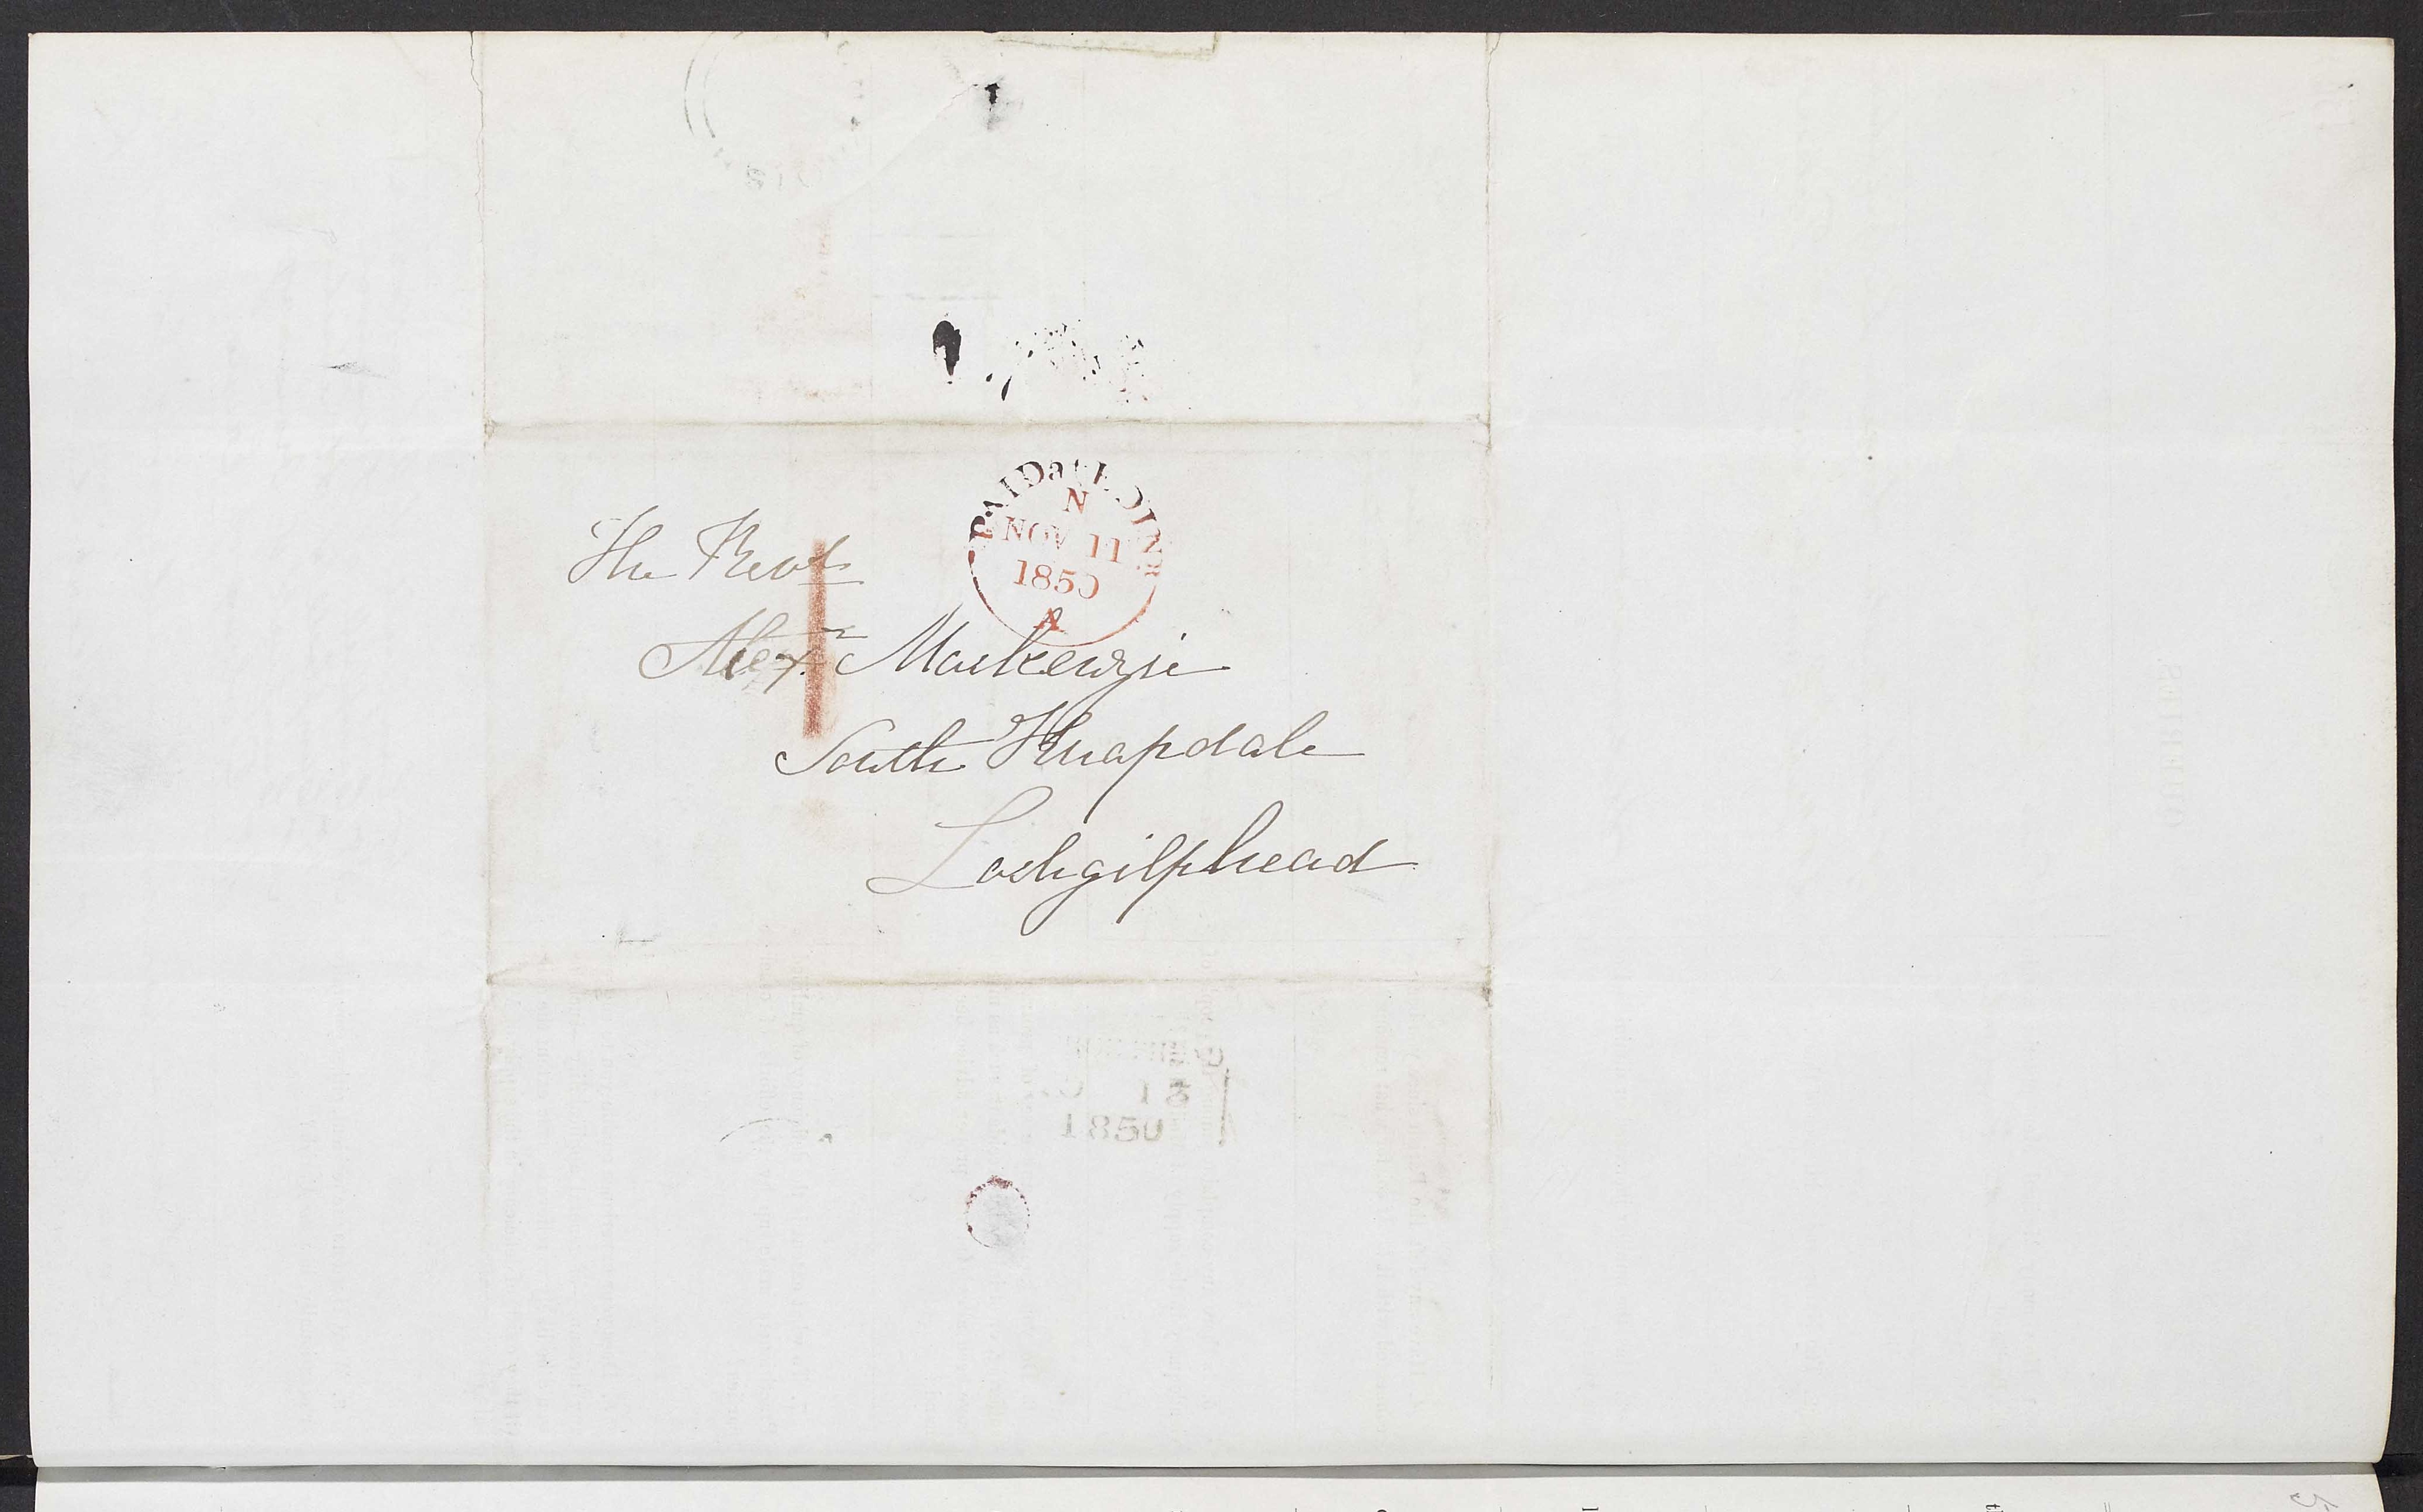 PAID at EDINR
N
NOV 11
1850
A
The Revd
Alexr Mackenzie
South Knapdale
Lochgilphead
13
1850